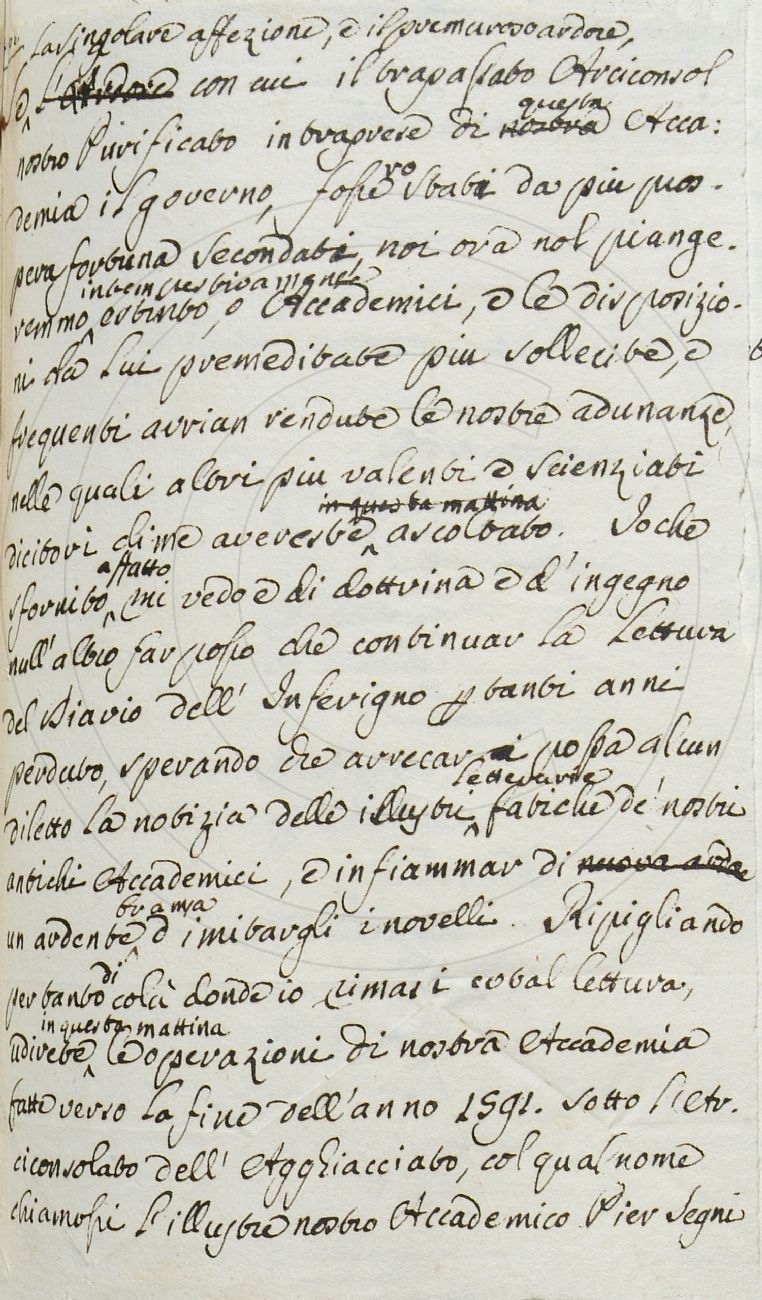 la singolare affezione, e il premuroso ardore,
Se l'ardore con cui il trapassato Arciconsol
questa
nostro Purificato intraprese di nostra Acca:
demia il governo, fossero stati da più pros-
pera fortuna secondati, noi ora nol piange-
intempestivamente
remmo estinto, o Accademici, e le disposizio-
ni da lui premeditate più sollecite, e
frequenti avrian rendute le nostre adunanze,
nelle quali altri più valenti e scienziati
in questa mattina
dicitori di me avereste ascoltato. Io che
affatto
sfornito mi vedo e di dottrina e d'ingegno
null'altro far posso che continuar la Lettura
del Diario dell'Inferigno p tanti anni
perduto, sperando che arrecar possa alcun
letterarie
diletto la notizia delle illustri fatiche de' nostri
antichi Accademici, e infiammar di nuova arde
brama
un ardente d'imitargli i novelli. Ripigliando
di
pertanto colà donde io rimasi cotal lettura,
in questa mattina
udirete le operazioni di nostra Accademia
fatte verso la fine dell'anno 1591. sotto l'Ar-
ciconsolato dell'Agghiacciato, col qual nome
chiamossi l'illustre nostro Accademico Pier Segni